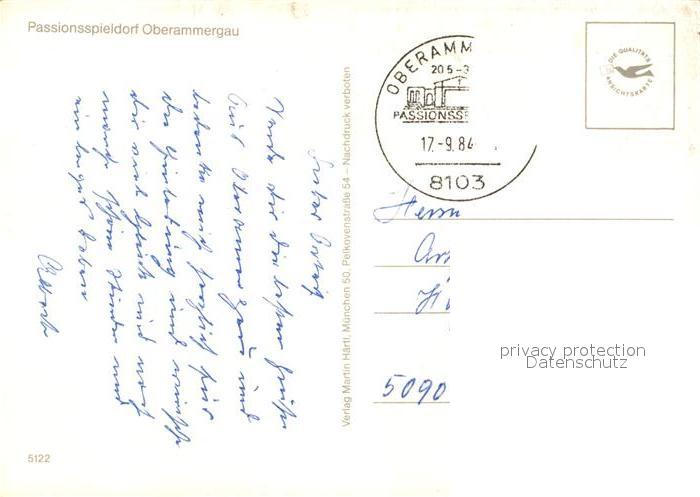 Passionsspieldorf Oberammergau
Lieber
Sende dir die besten Grüße
aus Oberammergau und
bedanke mich herzlich für
die Einladung und wünsche
dir viel Glück und noch
manche schöne Stunden und
ein langes Leben
Verlag Martin Härtl, München 50, Pelkovenstraße 54 – Nachdruck verboten
5122
OBERAMM
20 5 - 3
PASSIONSS
17.-9.84
8103
DIE QUALITÄTS
ANSICHTSKARTE
Herrn
5090
privacy protection
Datenschutz